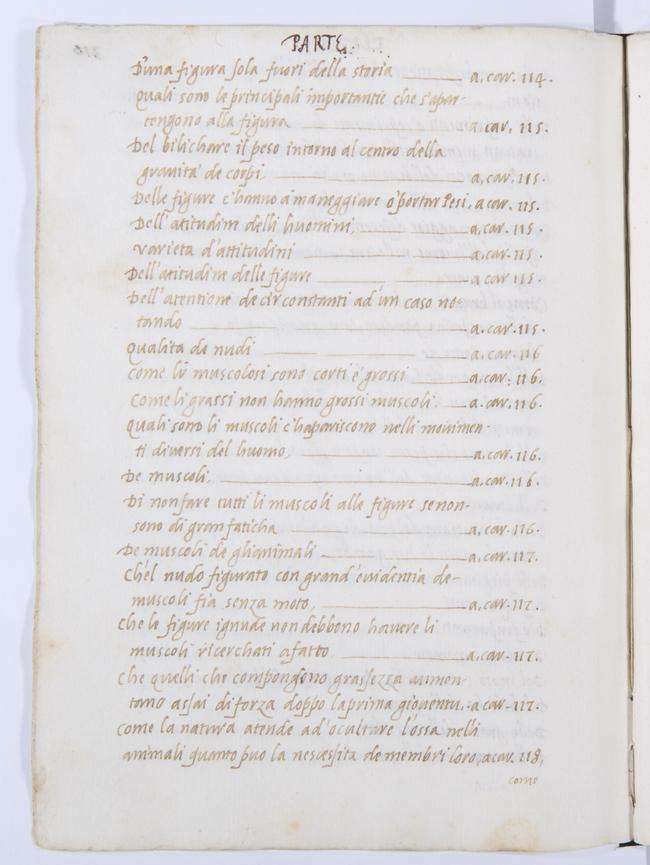 PARTE.
D'una figura sola fuori della storia a. car. 114.
Quali sono le principali importantie che s'apar-
tengono alla figura a. car. 115.
Del bilichare il peso intorno al centro della
gravita de corpi a. car. 115.
Delle figure c'hanno à maneggiare ò portar Pesi, a car. 115.
Dell'atitudine delli huomini, a. car. 115.
varieta d'attitudini a. car. 115.
Dell'atitudine delle figure a car 115.
Dell'atentione de circonstanti ad un caso no-
tando a. car. 115.
Qualita de nudi a. car. 116
come lì muscolosi sono corti e grossi a. car. 116.
Come li grassi non hanno grossi muscoli. a. car. 116.
quali sono li muscoli c'hapariscono nelli movimen-
ti diversi del huomo, a. car. 116.
De muscoli, a. car. 116.
Di non fare tutti li muscoli alle figure se non
sono di gran faticha a. car. 116.
De muscoli de gli animali a. car. 117.
Ch'el nudo figurato con grand'evidentia de-
muscoli fia senza moto, a. car. 117.
che le figure ignude non debbono havere li
muscoli ricerchati afatto, a. car. 117.
che quelli che compongono grassezza aumen-
tano assai di forza doppo la prima gioventu, a car. 117.
come la natura atende ad ocultare l'ossa nelli
animali quanto può la nescessita de membri loro, a car. 118,
come